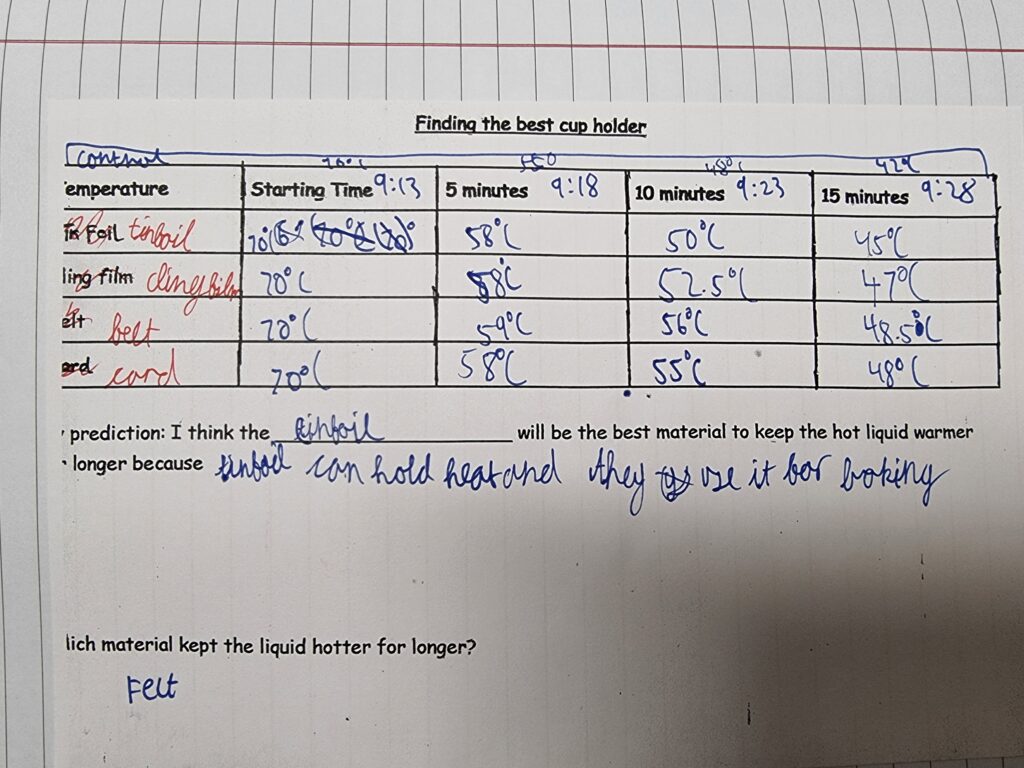 Finding the best cup holder
control 70°C 48°C 42°C
emperature Starting Time 9:13 5 minutes 9:18 10 minutes 9:23 15 minutes 9:28
in Foil tinfoil 70°C 58°C 50°C 45°C
ling film clingfilm 70°C 58°C 52.5°C 47°C
elt felt 70°C 59°C 56°C 48.5°C
ard card 70°C 58°C 55°C 48°C
prediction: I think the tinfoil will be the best material to keep the hot liquid warmer
longer because tinfoil can hold heat and they use it for baking
ich material kept the liquid hotter for longer?
Felt